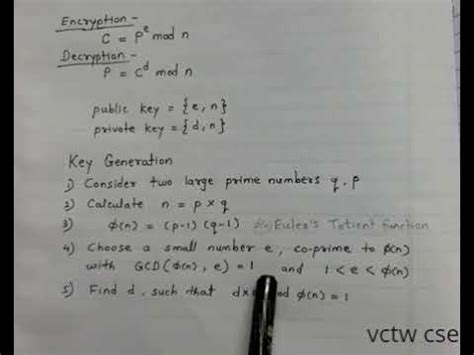 Encryption -
C = P^e mod n
Decryption -
P = C^d mod n
public key = {e, n}
private key = {d, n}
Key Generation
1) Consider two large prime numbers q, p
2) Calculate n = p × q
3) φ(n) = (p-1) (q-1) φ(n) Euler's Totient function
4) Choose a small number e, co-prime to φ(n)
with GCD (φ(n), e) = 1 and 1 < e < φ(n)
5) Find d, such that d× φ(n) = 1
vctw cse